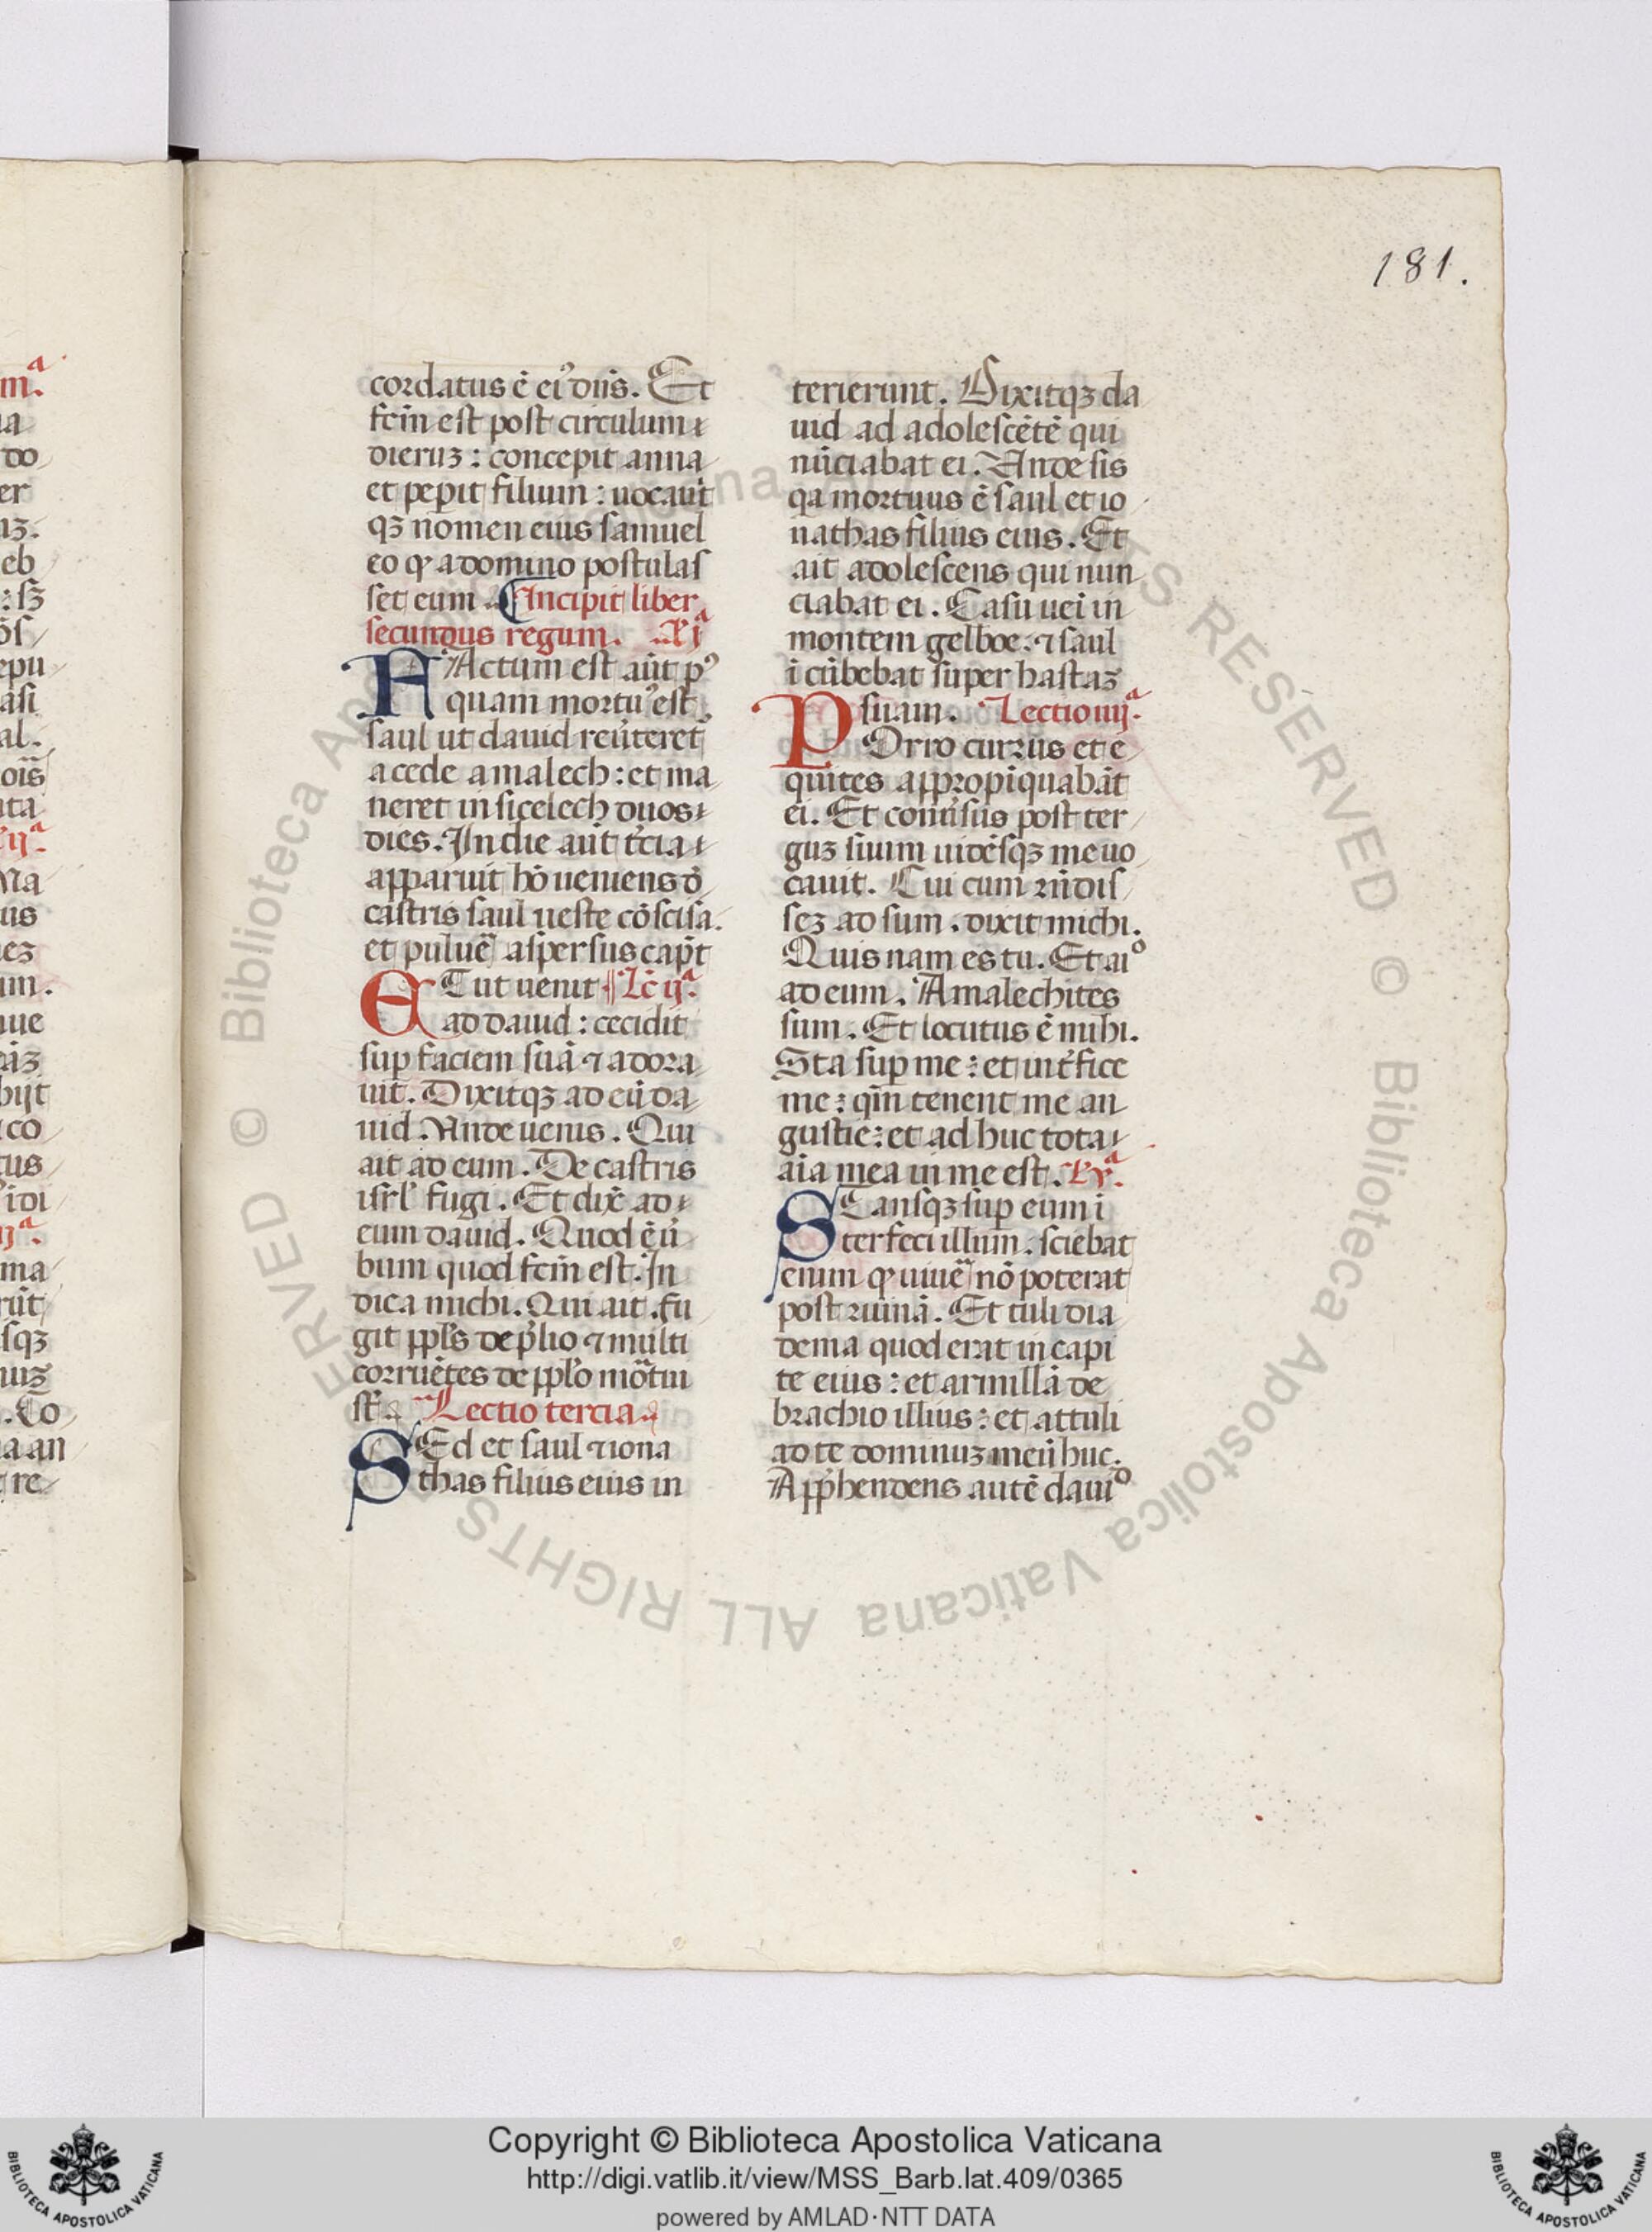 181.
cordatus ē ei᾽ dn̄s. Et
fc̄m est post circulum
dieruꝫ : concepit anna
et peꝑit filium : uocauit
qꝫ nomen eius samuel
eo ꝙ a domino postulas
set eum. Incipit liber
secundus regum. Lc̄ jᵃ
FActum est aūt pꝰ
quam mortuꝰ est
saul ut dauid reūteret᷑
a cede amalech : et ma
neret in sicelech duos
dies. In die aūt tꝰcia
apparuit hō ueniens dē
castris saul ueste cōscisa.
et puluē aspersus cap̄t
ETut uenit Lc̄ ijᵃ.
ad dauid : cecidit
suꝑ faciem suā ⁊ adora
uit. Dixitqꝫ ad eū da
uid. Unde uenis. Qui
ait ad eum. De castris
isrl᾽ fugi. Et dix̄ ad
eum dauid. Quod ē ū
bum quod fc̄m est. In
dica michi. Qui ait. fu
git ppl᾽s de p̄lio ⁊ multi
corruētes de ppl᾽o mōtui
st̄. Lectio tercia
SEd et saul ⁊ iona
thas filius eius in
terierunt. Dixitqꝫ da
uid ad adolescētē qui
nūciabat ei. Unde sis
qa mortuus ē saul et io
nathas filius eius. Et
ait adolescens qui nun
ciabat ei. Casu uēi in
montem gelboe. ⁊ saul
īcūbebat super hastaꝫ
suam. Lectio iiijᵃ.
POrro currus et e
quites appropīquabāt
ei. Et conūsus post ter
guꝫ suum uidēsqꝫ me uo
cauit. Cui cum rn̄dis
seꝫ ad sum. dixit michi.
Quis nam es tu. Et aiᵒ
ad eum. Amalechites
sum. Et locutus ē mihi.
Sta suꝑ me : et int᾽fice
me : qm̄ tenent me an
gustie : et ad huc tota
aīa mea in me est. Lc̄ vᵃ.
STansqꝫ suꝑ eum ī
terfeci illum. sciebat
enim ꝙ uiuē nō poterat
post ruinā. Et tuli dia
dema quod erat in capi
te eius : et armillā de
brachio illius : et attuli
ad te dominuꝫ meū huc.
App̄hendens autē dauiᵒ
Copyright © Biblioteca Apostolica Vaticana
http://digi.vatlib.it/view/MSS_Barb.lat.409/0365
powered by AMLAD·NTT DATA